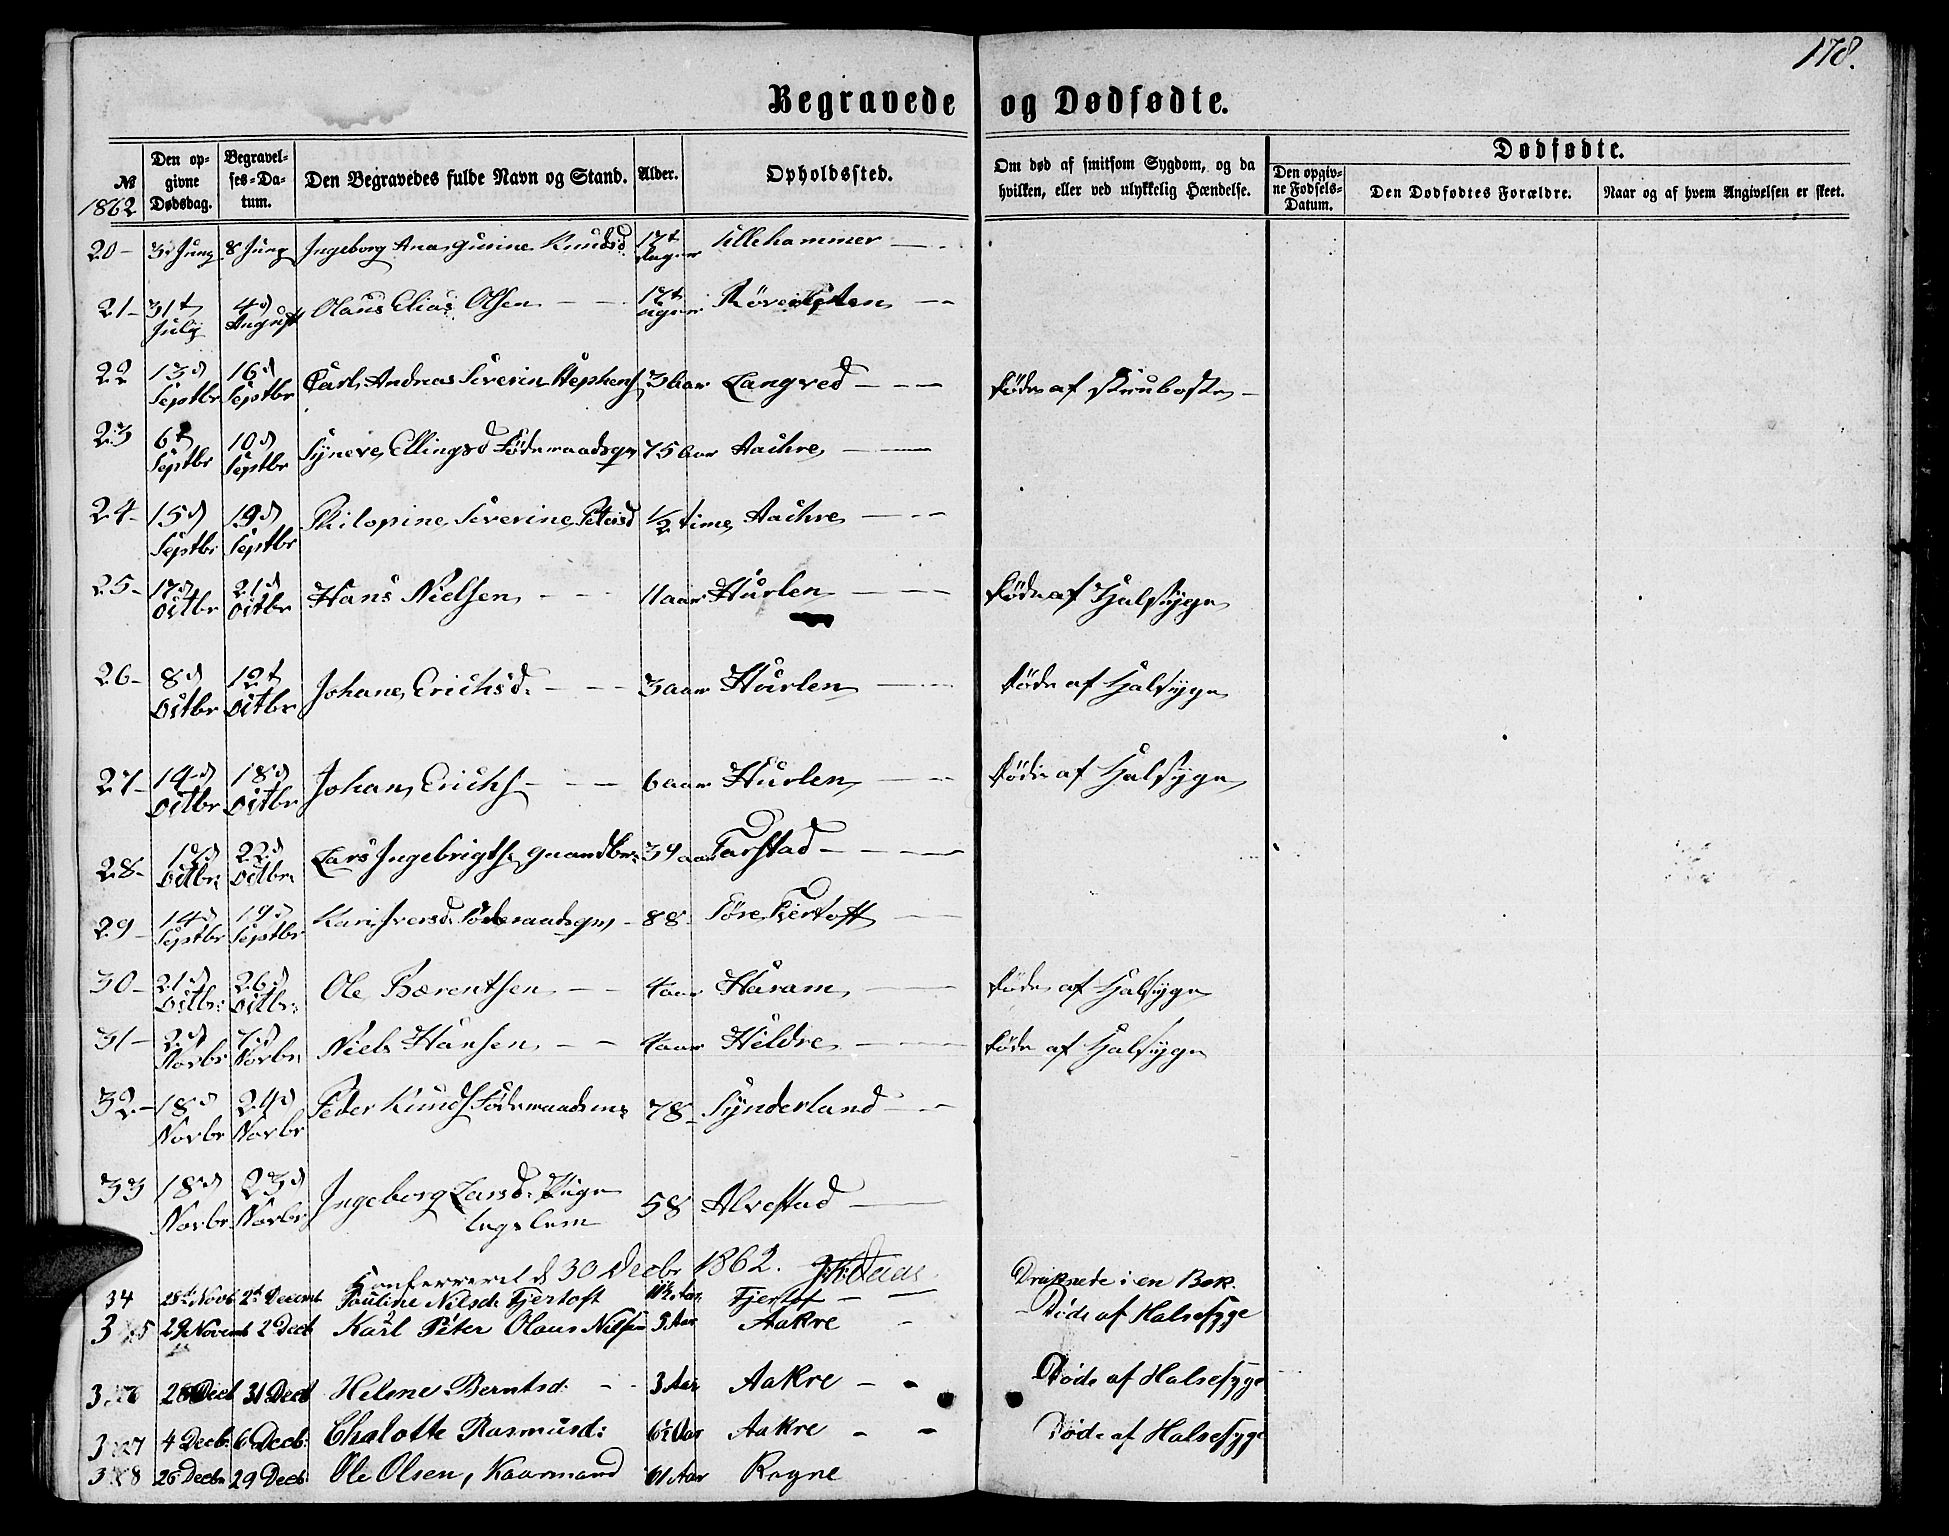 178.
Begravede og Dødfødte.
№ 1862
Den opgivne Dødsdag.
Begravelses-Datum.
Den Begravedes fulde Navn og Stand.
Alder.
Opholdssted.
Om død af smitsom Sygdom, og da hvilken, eller ved ulykkelig Hændelse.
Dødfødte.
Den opgivne Fødsels-Datum.
Den Dødfødtes Forældre.
Naar og af hvem Angivelsen er skeet.
20- 3 Juny 8 Juny Ingeborg Ana Gurine Knudsd. 17 dager Ullehammer
21- 31t July 4d August Olaus Elias Olsen 17t uger
22 13d Septbr 16d Septbr Carl Andreas Severin Stephens 3 aar Langved Døde af
23 6t Septbr 10d Septbr Syneve Ellingsd 75 aar Aachre
24- 15d Septbr 19d Septbr Philopine Severine Petersd 1/2 time Aachre
25- 17d Octbr 21d Octbr Hans Nielsen 11 aar Hurlen Døde af Halsyge
26- 8d Octbr 12t Octbr Johane Erichsd. 3 aar Hurlen Døde af Halsyge
27- 14d Octbr 18d Octbr Johan Erichs 6 aar Hurlen Døde af Halsyge
28- Octbr: 22d Octbr: Lars Ingebrigts. Gaardbr: 39 aar Farstad
29- 14d Septbr 19d Septbr Kari Iversd. Føderaadsqn 88- Søre Fiertoft
30- 21d Octbr: 26d Octbr: Ole Bærentsen 4 aar Haram Døde af Halsyge
31- 2d Novbr 7d Novbr Niels Hansen 4 aar Hildre Døde af Halsyge
32- 18d Novbr 24d Novbr Peder Knuds. Føderaadsm: 78- Synderland
33 18d Novbr 23d Novbr Ingeborg Larsd. Pige 58 Alvestad
Konfereret d 30 Decbr 1862.
34 2d Decemb Pauline Nilsd. Fjertoft Fjertoft Druknede i en Bæk.
35 29 Novemb 2 Decb Karl Peter Olaus Nilsen 3 Aar Aakre Døde af Halsesyge
36 28 Decb 31 Decb Helene Berntsd. 3 Aar Aakre Døde af Halsesyge
37 4 Decb: 6 Decb: Chalotte Rasmusd: 6½ Aar Aakre Døde af Halsesyge
38 26 Decbr 29 Decb Ole Olsen, Kaarmand 61 Aar Rogne